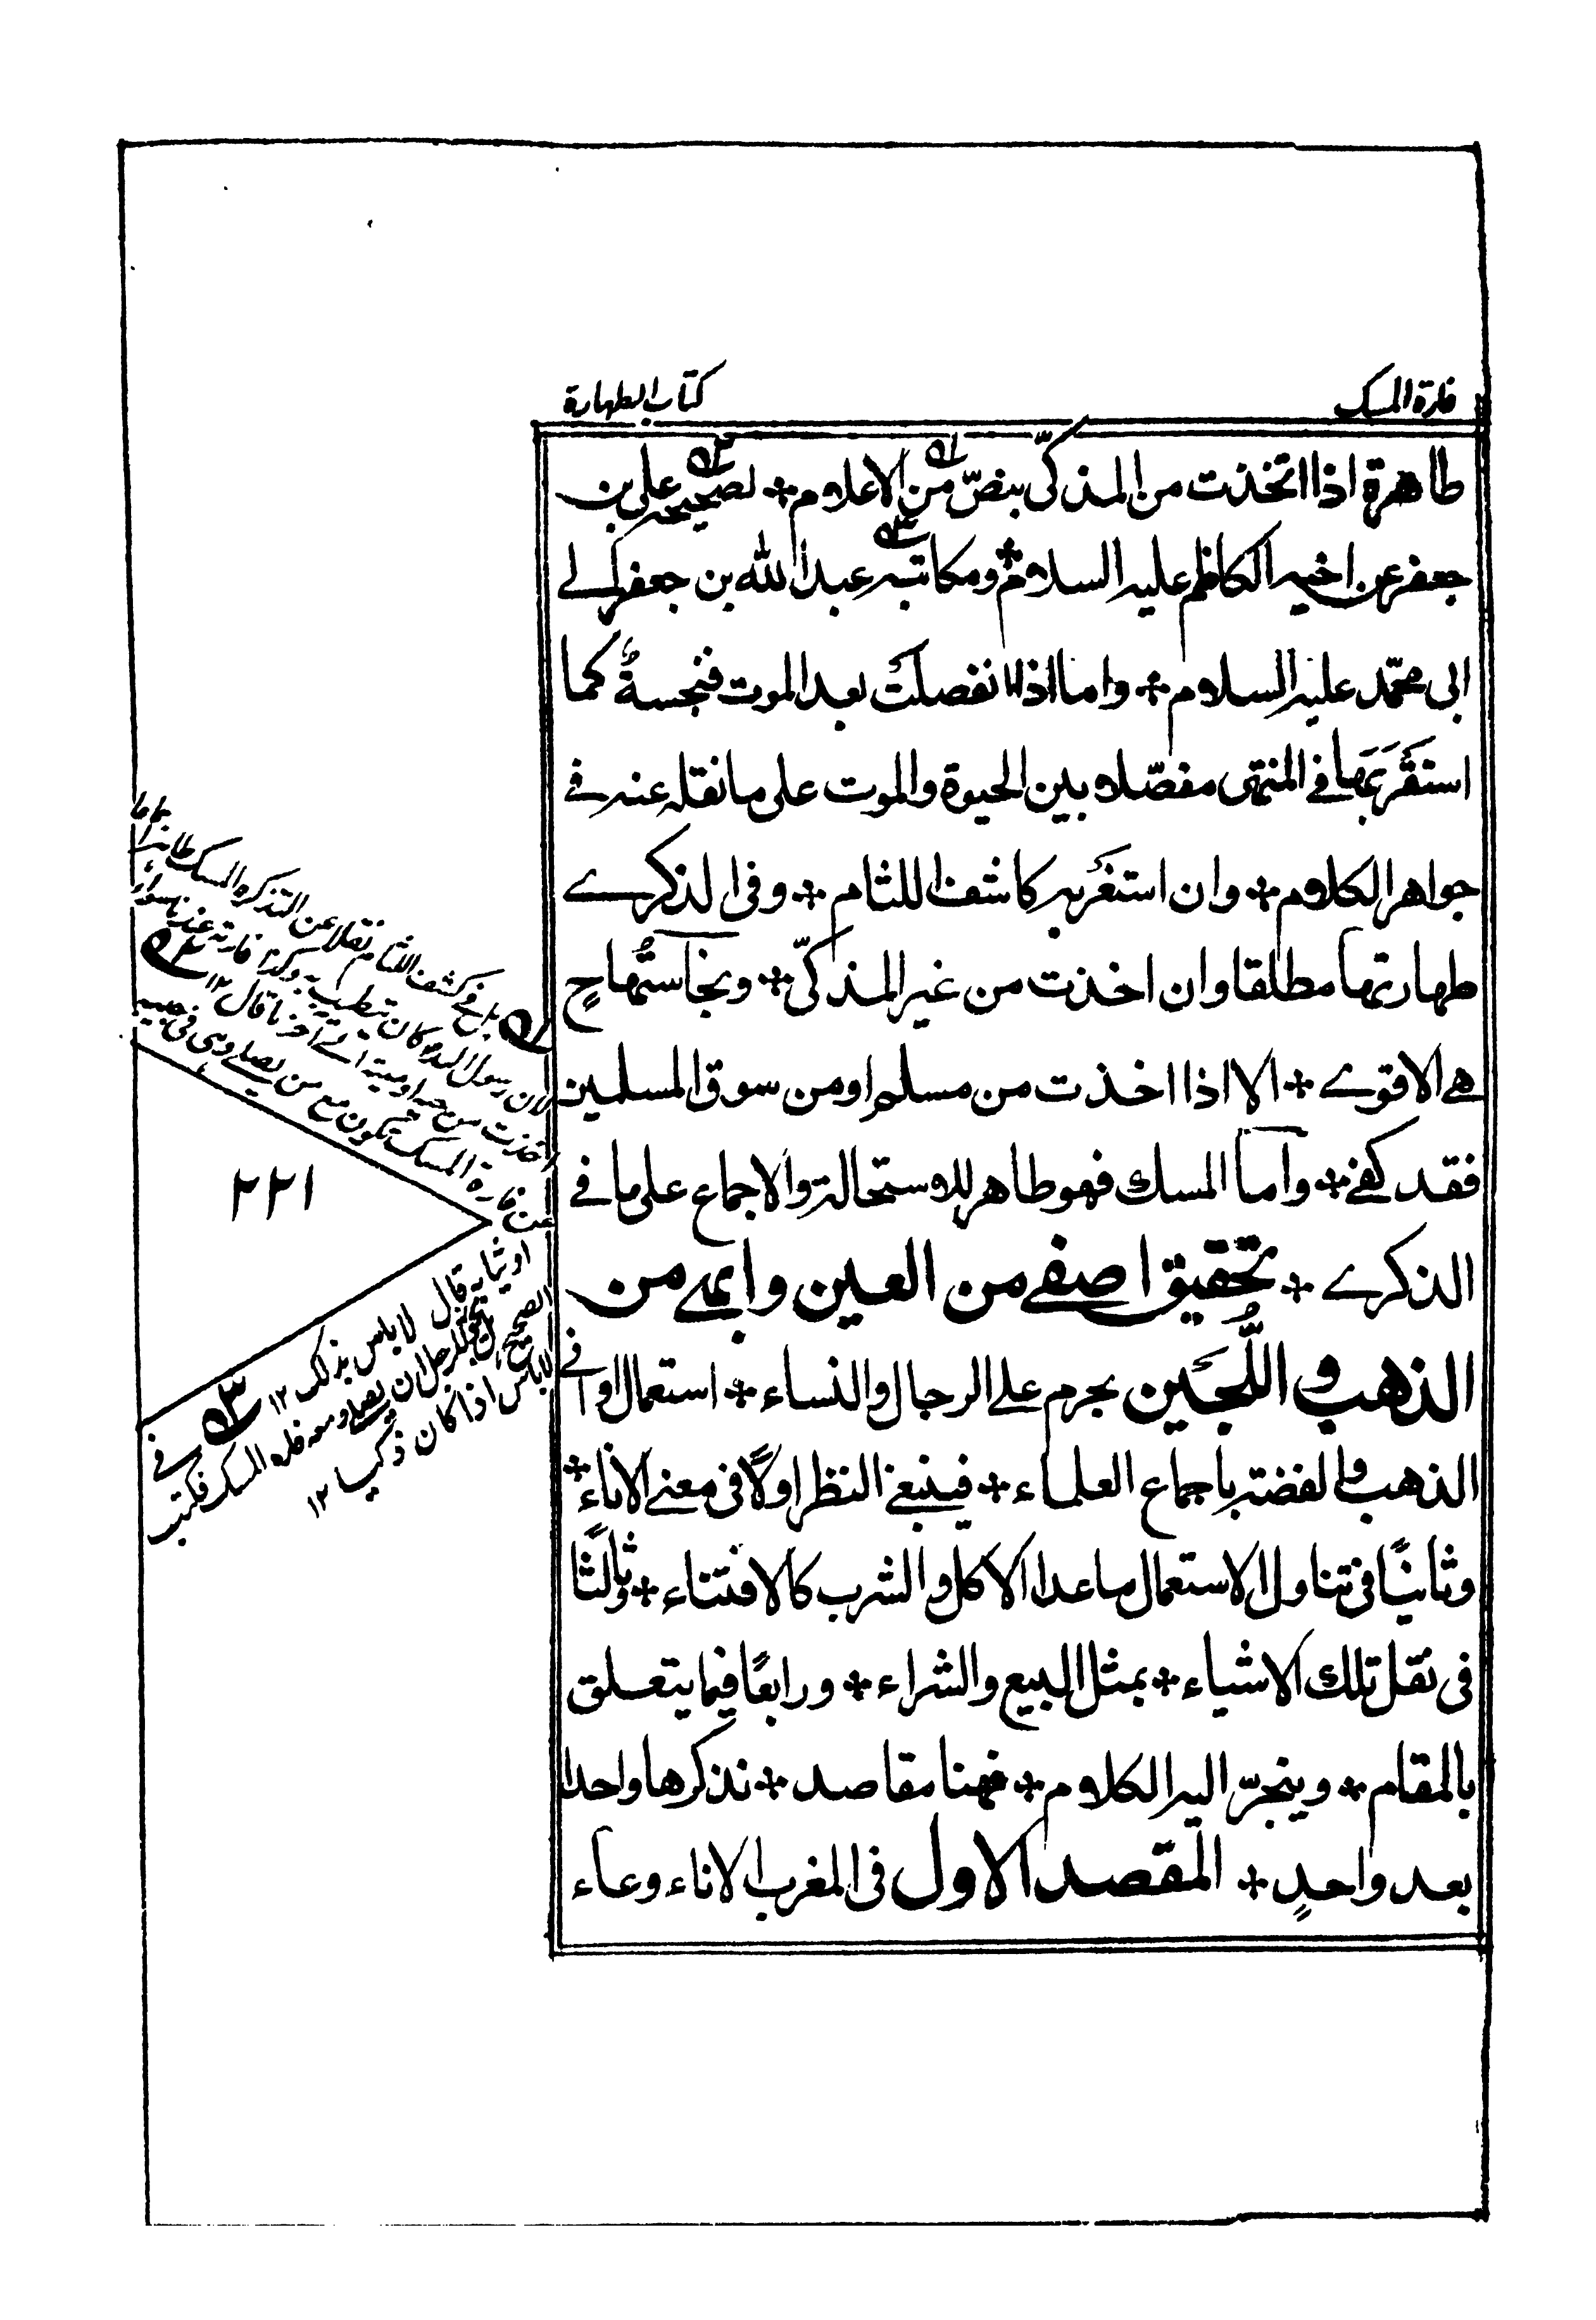 فارة المسك
كتاب الطهارة
طاهرة اذا اتخذت من المذكّى بنصّ من الاعلام * لصحيحة على بن
جعفر عن اخيه الكاظم عليه السلام * ومكاتبة عبد الله بن جعفر الے
ابى محمّد عليه السلام * واما اذا انفصلت بعد الموت فنجسةٌ كما
استقرَبَها فى المنتهى مفصّلا بين الحيوة والموت على ما نقله عنه فے
جواهر الكلام * وان استغربه كاشف اللثام * وفى الذكرے
طهارتها مطلقا وان اخذت من غير المذكّى * ونجاستُها حٍ
هے الاقوے * الا اذا اخذت من مسلم او من سوق المسلمين
فقد كفے * واما المسك فهو طاهر للاستحالة والاجماع على ما فے
الذكرے * تحقيق اصفے من العين وابهے من
الذهب و اللُّجَين يحرم على الرجال والنساء * استعمال اوانے
الذهب والفضة باجماع العلماء * فينبغے النظر اولًا فى معنے الاناء *
وثانيًا فى تناول الاستعمال ما عدا الاكل والشرب كالاقتناء * وثالثًا
فى نقل تلك الاشياء * بمثل البيع والشراء * ورابعًا فيما يتعلق
بالمقام * وينجرّ اليه الكلام * فههنا مقاصد * نذكرها واحدا
بعد واحدٍ * المقصد الاول فى المغرب الاناء وعاء
فى كشف اللثام نقلا عن التذكره المسك طاهر
لان رسول الله كان يتطيب به وكذا فارته عندنا سواء
اخذت من حية او ميتة الے اخر ما قال ١٢
عن فارة المسك تكون مع من يصلے وهى فى جيبه
او ثيابه قال لا باس بذلك ١٢
فے
الصحيح يجوز للرجل ان يصلے ومعه فاره المسك فكتب
لا باس اذا كان ذكيا ١٢
٢٢١